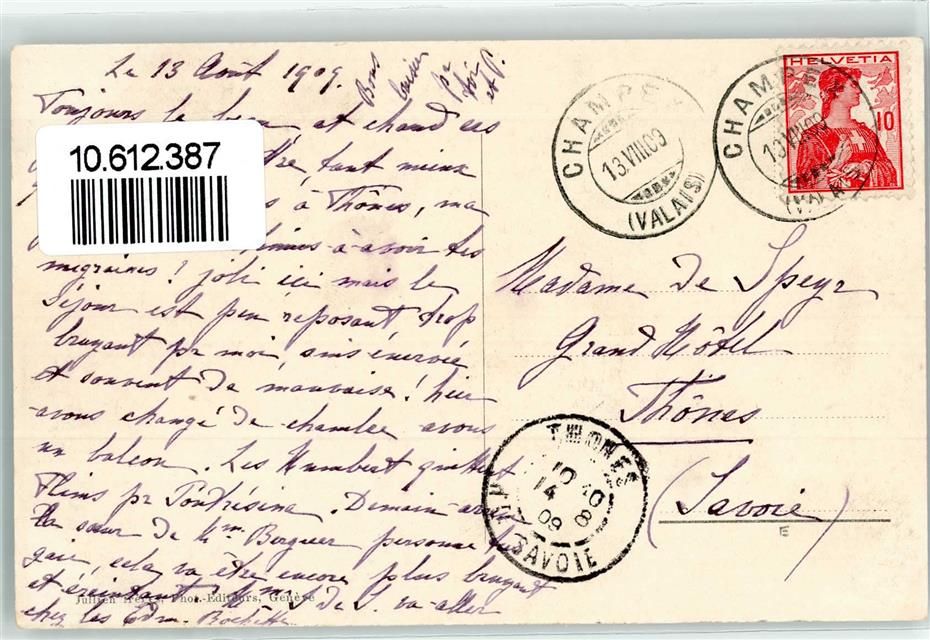 Le 13 Août 1909.
Bons
baisers
pr
toi
et P.
Toujours le beau et chaud
tant mieux
à Thônes, ma
à avoir tes
migraines ! joli ici mais le
séjour est peu reposant, trop
bruyant pr moi, suis énervée
et souvent de mauvaise ! hier
avons changé de chambre avons
un balcon. Les Humbert quittent
Flims pr Pontrésina. Demain
la sœur de Mme personne
gaie, cela va être encore plus bruyant
et éreintant. de S. va aller
chez les Edm.
10.612.387
Jullien frères, Phot.-Editeurs, Genève
CHAMPEX
13.VIII.09
(VALAIS)
CHAMPEX
13.VIII.09
(VALAIS)
HELVETIA
10
Madame de Speyr
Grand Hôtel
Thônes
(Savoie)
THONES
14 8
09
SAVOIE
E